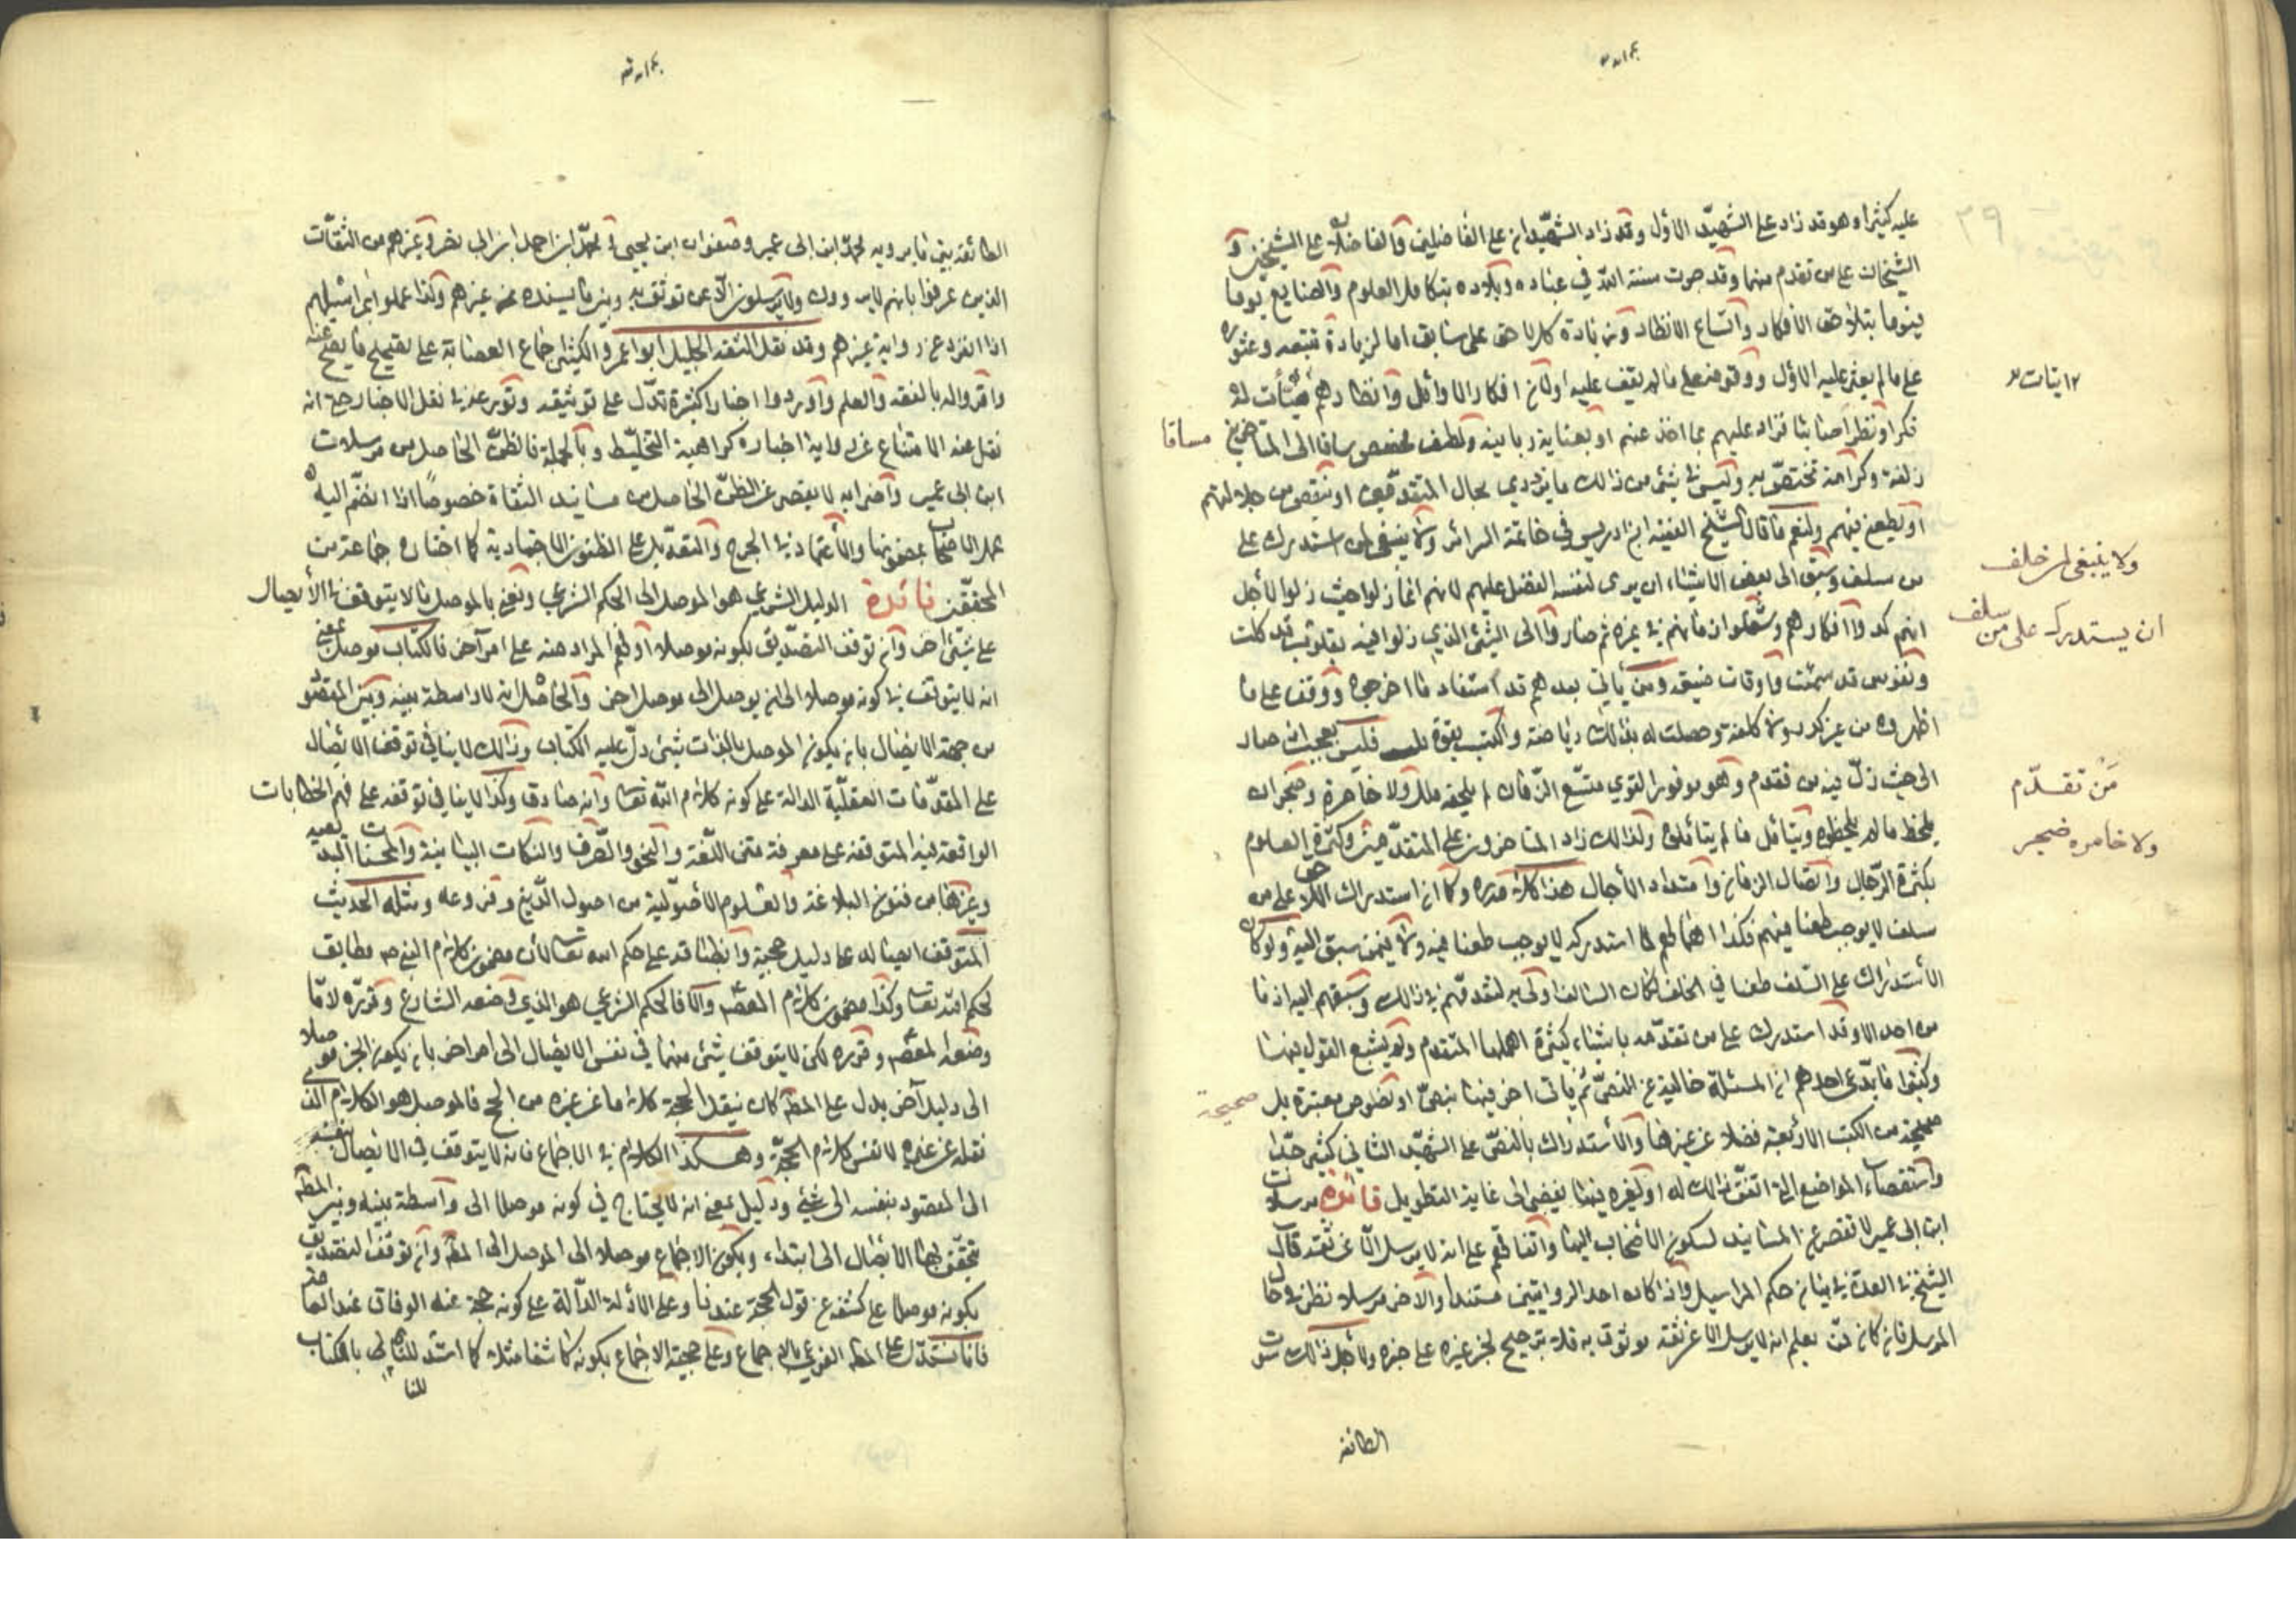 عليه كثيرا وهو قد زاد على الشهيد الاول وقد زاد الشهيدان على الفاضلين والفاضلان على الشيخين و
الشيخان على من تقدم منهما وقد جرت سنة الله في عباده وبلاده بتكامل العلوم والصنايع يوما
فيوما بتلاحق الافكار واتساع الانظار ومن زيادة كل لاحق على سابق اما لزيادة تتبعه وعثوره
على ما لم يعثر عليه الاول ووقوفه على ما لم يقف عليه اولان افكار الاوائل وانظارهم هيأت له
فكرا ونظرا صائبا فزاد عليهم بما اخذ عنهم او بعناية ربانية ولطف مخصوص ساقا الى المتاخرين
مساقا
زلفة وكرامة تختص به وليس في شيء من ذالك ما يزدري بحال المتقدمين او ينقص من جلالتهم
او يطعن فيهم ولنعم ما قال الشيخ الفقيه ابن ادريس في خاتمة السرائر ولا ينبغي لمن استدرك على
ولا ينبغي لمن خلف
ان يستدرك على من سلف
من سلف وسبق الى بعض الاشياء ان يرى لنفسه الفضل عليهم لانهم انما زلوا حيث زلوا لاجل
انهم كدوا افكارهم وشغلوا زمانهم في غيره ثم صاروا الى الشيء الذي زلوا فيه بقلوب قد كلت
ونفوس قد سئمت واوقات ضيقه ومن ياتي بعدهم قد استفاد ما اخرجوه ووقف على ما
اظهروه من غير كد ولا كلفة وحصلت له بذالك رياضة واكتسب قوة فليس بعجيب اذا صار
الى حيث زل فيه من تقدم وهو موفور القوي متسع الزمان لم يلحقه ملل ولا خامره ضجر ان
مَن تقدّم
ولا خامره ضجر
يلحظ ما لم يلحظوه ويتامل ما لم يتاملوه ولذالك زاد المتاخرون على المتقدمين وكثرة العلوم
بكثرة الرجال واتصال الزمان وامتداد الاجال هذا كلامه قدره وكما ان استدراك اللاحق على من
سلف لا يوجب طعنا فيهم فكذا اهمالهم لما استدركه لا يوجب طعنا فيه ولا فيمن سبق اليه ولو كان
الاستدراك على السلف طعنا في الخلف لكان السالف اولى به لتقدمهم في ذالك وسبقهم اليه اذ ما
من احد الا وقد استدرك على من تقدمه باشياء كثيرة اهملها المتقدم ولم يشبع القول فيها
وكثيرا ما يدعي احدهم ان المسئلة خالية عن النص ثم ياتي اخر فيها بنص او نصوص معتبرة بل
صحيحة
صحيحة من الكتب الاربعة فضلا عن غيرها والاستدراك بالنص على الشهيد الثاني كثير جدا
واستقصاء المواضع التي اتفق ذالك له او لغيره فيها يفضي الى غاية التطويل فائدة مرسلات
ابن ابي عمير لا تقصر عن المسانيد لسكون الاصحاب اليها واتفاقهم على انه لا يرسل الا عن ثقة قال
الشيخ في العدة في بيان حكم المراسيل واذا كان احد الروايتين مسندا والاخر مرسلا نظر في حال
المرسل فان كان ممن يعلم انه لا يرسل الا عن ثقة موثوق به فلا ترجيح لخبر غيره على خبره ولاجل ذالك سوت
الطائفه
الطائفه بين ما يرويه محمد ابن ابى عمير وصفوان ابن يحيى و احمد ابن ابى نصر وغيرهم من الثقات
الذين عرفوا بانهم لا يروون ولا يرسلون الا عن توثق به وبين ما يسنده غيرهم وكذا عملوا بمراسيلهم
اذا انفرد عن رواية غيرهم وقد نقل الثقة الجليل ابو عمرو الكشي اجماع العصابة على تصحيح ما يصح عنه
واقروا له بالفقه والعلم واوردوا اخبارا كثيرة تدل على توثيقه وتورعه في نقل الاخبار حتى انه
نقل عنه الامتناع عن رواية اخباره كراهية التخليط وبالجملة فالظن الحاصل من مرسلات
ابن ابى عمير واضرابه لا يقصر عن الظن الحاصل من مسانيد الثقاة خصوصا اذا انضم اليه
عمل الاصحاب بمضمونها والاعتماد في الجرح والتعديل على الظنون الاجتهادية كما اختاره جماعة من
المحققين فائدة الدليل الشرعي هو الموصل الى الحكم الشرعي ونعني بالموصل ما لا يتوقف في الايصال
على شيئ اخر وان توقف التصديق بكونه موصلا او فهم المراد منه على امر آخر فالكتاب موصل بمعنى
انه لا يتوقف في كونه موصلا الى ان يوصل الى موصل اخر والحاصل انه لا واسطة بينه وبين المقصود
من جهة الايصال بان يكون الموصل بالذات شيئ دل عليه الكتاب وذالك لا ينافي توقف الايصال
على المقدمات العقلية الدالة على كونه كلام الله تعا وانه صادق وكذا لا ينافي توقفه على فهم الخطابات
الواقعة فيه المتوقفه على معرفة متن اللغة والنحو والصرف والنكات البيانية والمحسنات البديعيه
وغيرها من فنون البلاغة والعلوم الاصولية من اصول الدين وفروعه ومثله الحديث
المتوقف ايصاله على دليل حجية وانطباقه على حكم الله تعا لان مضمون كلام النبي ص مطابق
لحكم الله تعا وكذا مضمون كلام المعصم والا فالحكم الشرعي هو الذي وضعه الشارع وقرره لا ما
وضعه المعصم وقرره لكن لا يتوقف شيئ منهما في نفس الايصال الى امر اخر بان يكون الخبر موصلا
الى دليل آخر يدل على المطه كان ينقل الحجة كلاما عن غيره من الحجج فالموصل هو الكلام الذي
نقله عن غيره لا نفس كلام الحجة وهكذا الكلام في الاجماع فانه لا يتوقف في الايصال بنفسه
الى المقصود بنفسه الى شيئ ودليل بمعنى انه لا يحتاج في كونه موصلا الى واسطة بينه وبين المطه
بكونه موصلا على كشفه عن قول الحجة عندنا وعلى الادلة الدالة على كونه حجة عند الوفاق عند العامة
فانا نستدل على المطه الفرعي بالاجماع وعلى حجية الاجماع بكونه كاشفا مثلا كما استدللنا بالكتاب
للنا